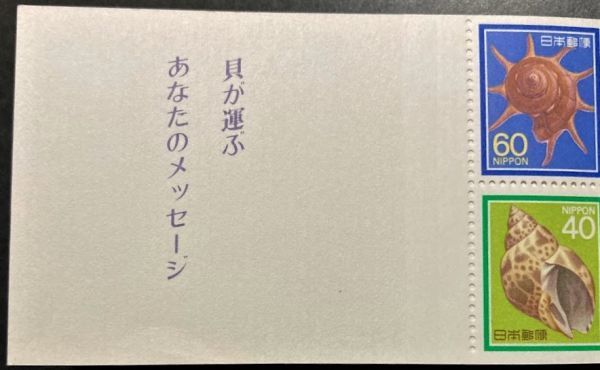 貝が運ぶ
あなたのメッセージ
日本郵便
60
NIPPON
NIPPON
40
日本郵便